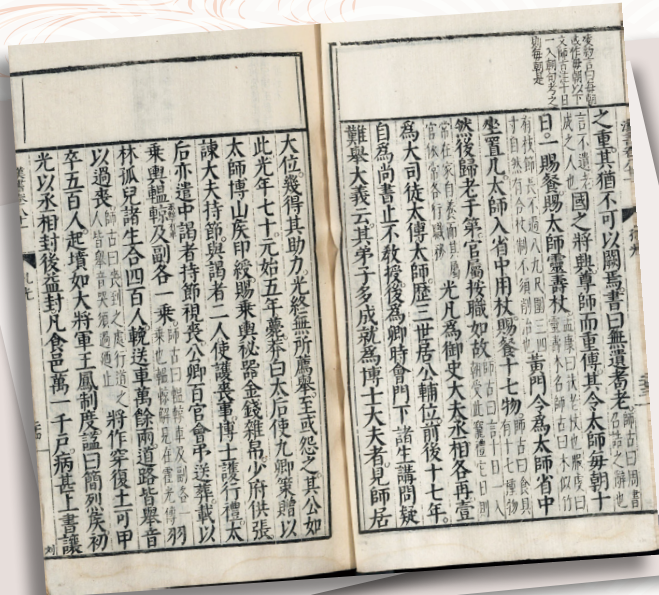 宋祁曰每朝
或作毎朝以下
文師古注十日
一入朝句考之
則每朝是
之重其猶不可以闕焉書曰無遺耇老師古曰周書召誥之辭也
言不遺老成之人也國之將興尊師而重傅其令太師毎朝十
日一賜餐賜太師靈壽杖孟康曰扶老杖也服虔曰靈壽木名師古曰木似竹
有枝節長不過八九尺圍三四寸自然有合杖制不須削治也黃門令爲太師省中
坐置几太師入省中用杖賜餐十七物師古曰食具有十七種物
然後歸老于第官屬按職如故師古曰言十日一入朝受此寵禮它日則
常在家自養而其屬官依常各行職務光凡爲御史大夫丞相各再壹
爲大司徒太傅太師歷三世居公輔位前後十七年
自爲尚書止不敎授後爲卿時會門下諸生講問疑
難舉大義云其弟子多成就爲博士大夫者見師居
大位幾得其助力光終無所薦舉至或怨之其公如
此光年七十元始五年薨莽白太后使九卿策贈以
太師博山侯印綬賜乘輿祕器金錢雜帛少府供張
諫大夫持節與謁者二人使護喪事博士護行禮太
后亦遣中謁者持節視喪公卿百官會弔送葬載以
乘輿轀輬及副各一乘師古曰轀輬車及副各一乘也轀輬解具在霍光傳羽
林孤兒諸生合四百人輓送車萬餘兩道路皆舉音
以過喪師古曰喪到之處行道之人皆舉音哭須過迺止將作穿復土可甲
卒五百人起墳如大將軍王鳳制度謚曰簡烈侯初
光以丞相封後益封凡食邑萬一千戶病甚上書讓